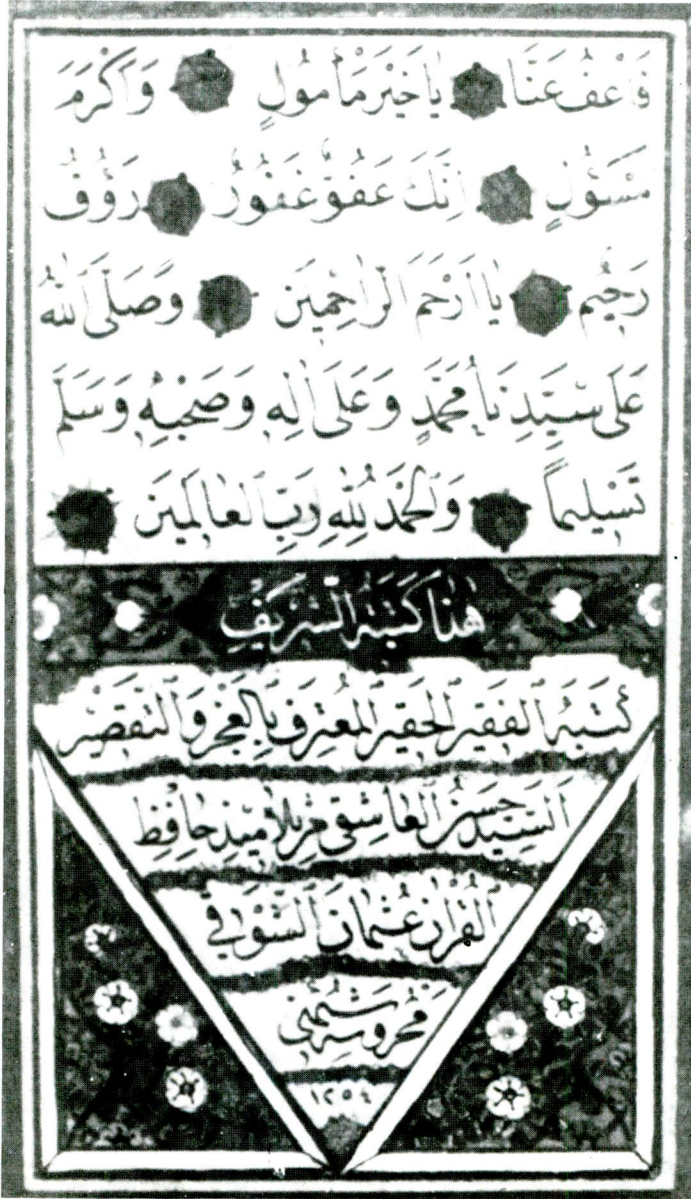 فَاعْفُ عَنَّا يَا خَيْرَ مَأْمُولٍ وَاَكْرَمَ
مَسْؤُلٍ اِنَّكَ عَفُوٌّ غَفُورٌ رَؤُفٌ
رَحِيمٌ يَا اَرْحَمَ الرَّاحِمِينَ وَصَلَّى اللّٰهُ
عَلَى سَيِّدِنَا مُحَمَّدٍ وَعَلَى اٰلِهِ وَصَحْبِهِ وَسَلَّمَ
تَسْلِيمًا وَالْحَمْدُ لِلّٰهِ رَبِّ الْعَالَمِينَ
هٰذَا كَتَبَهُ الشَّرِيفُ
كَتَبَهُ الْفَقِيرُ الْحَقِيرُ الْمُعْتَرِفُ بِالْعَجْزِ وَالتَّقْصِيرِ
اَلسَّيِّدُ حَسَنُ الْعَاشِقِي مِنْ تَلَامِيذِ حَافِظِ
الْقُرْاٰنِ عُثْمَانَ
مَحْرُوسَهِ شُمْنِي
١٢٥٤